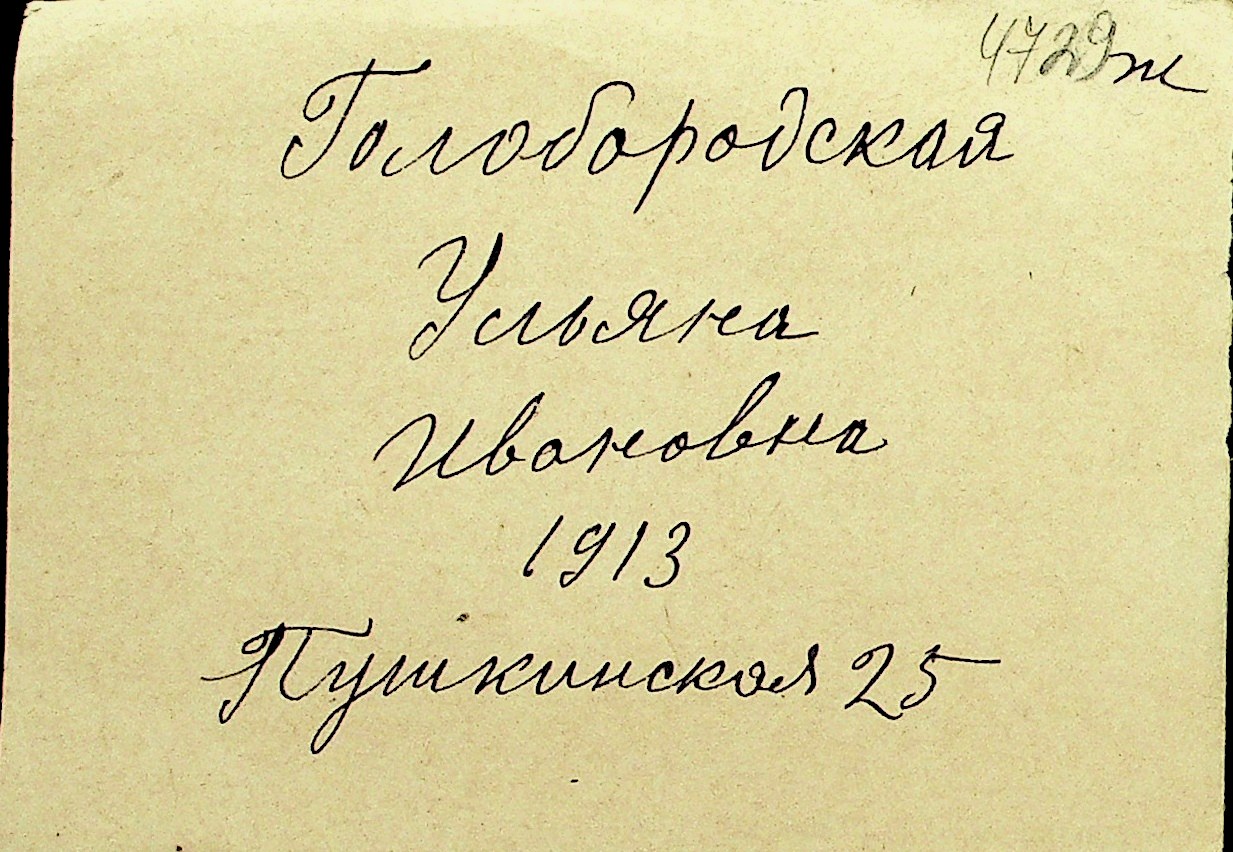 4729ж
Голобородская
Ульяна
Ивановна
1913
Пушкинская 25